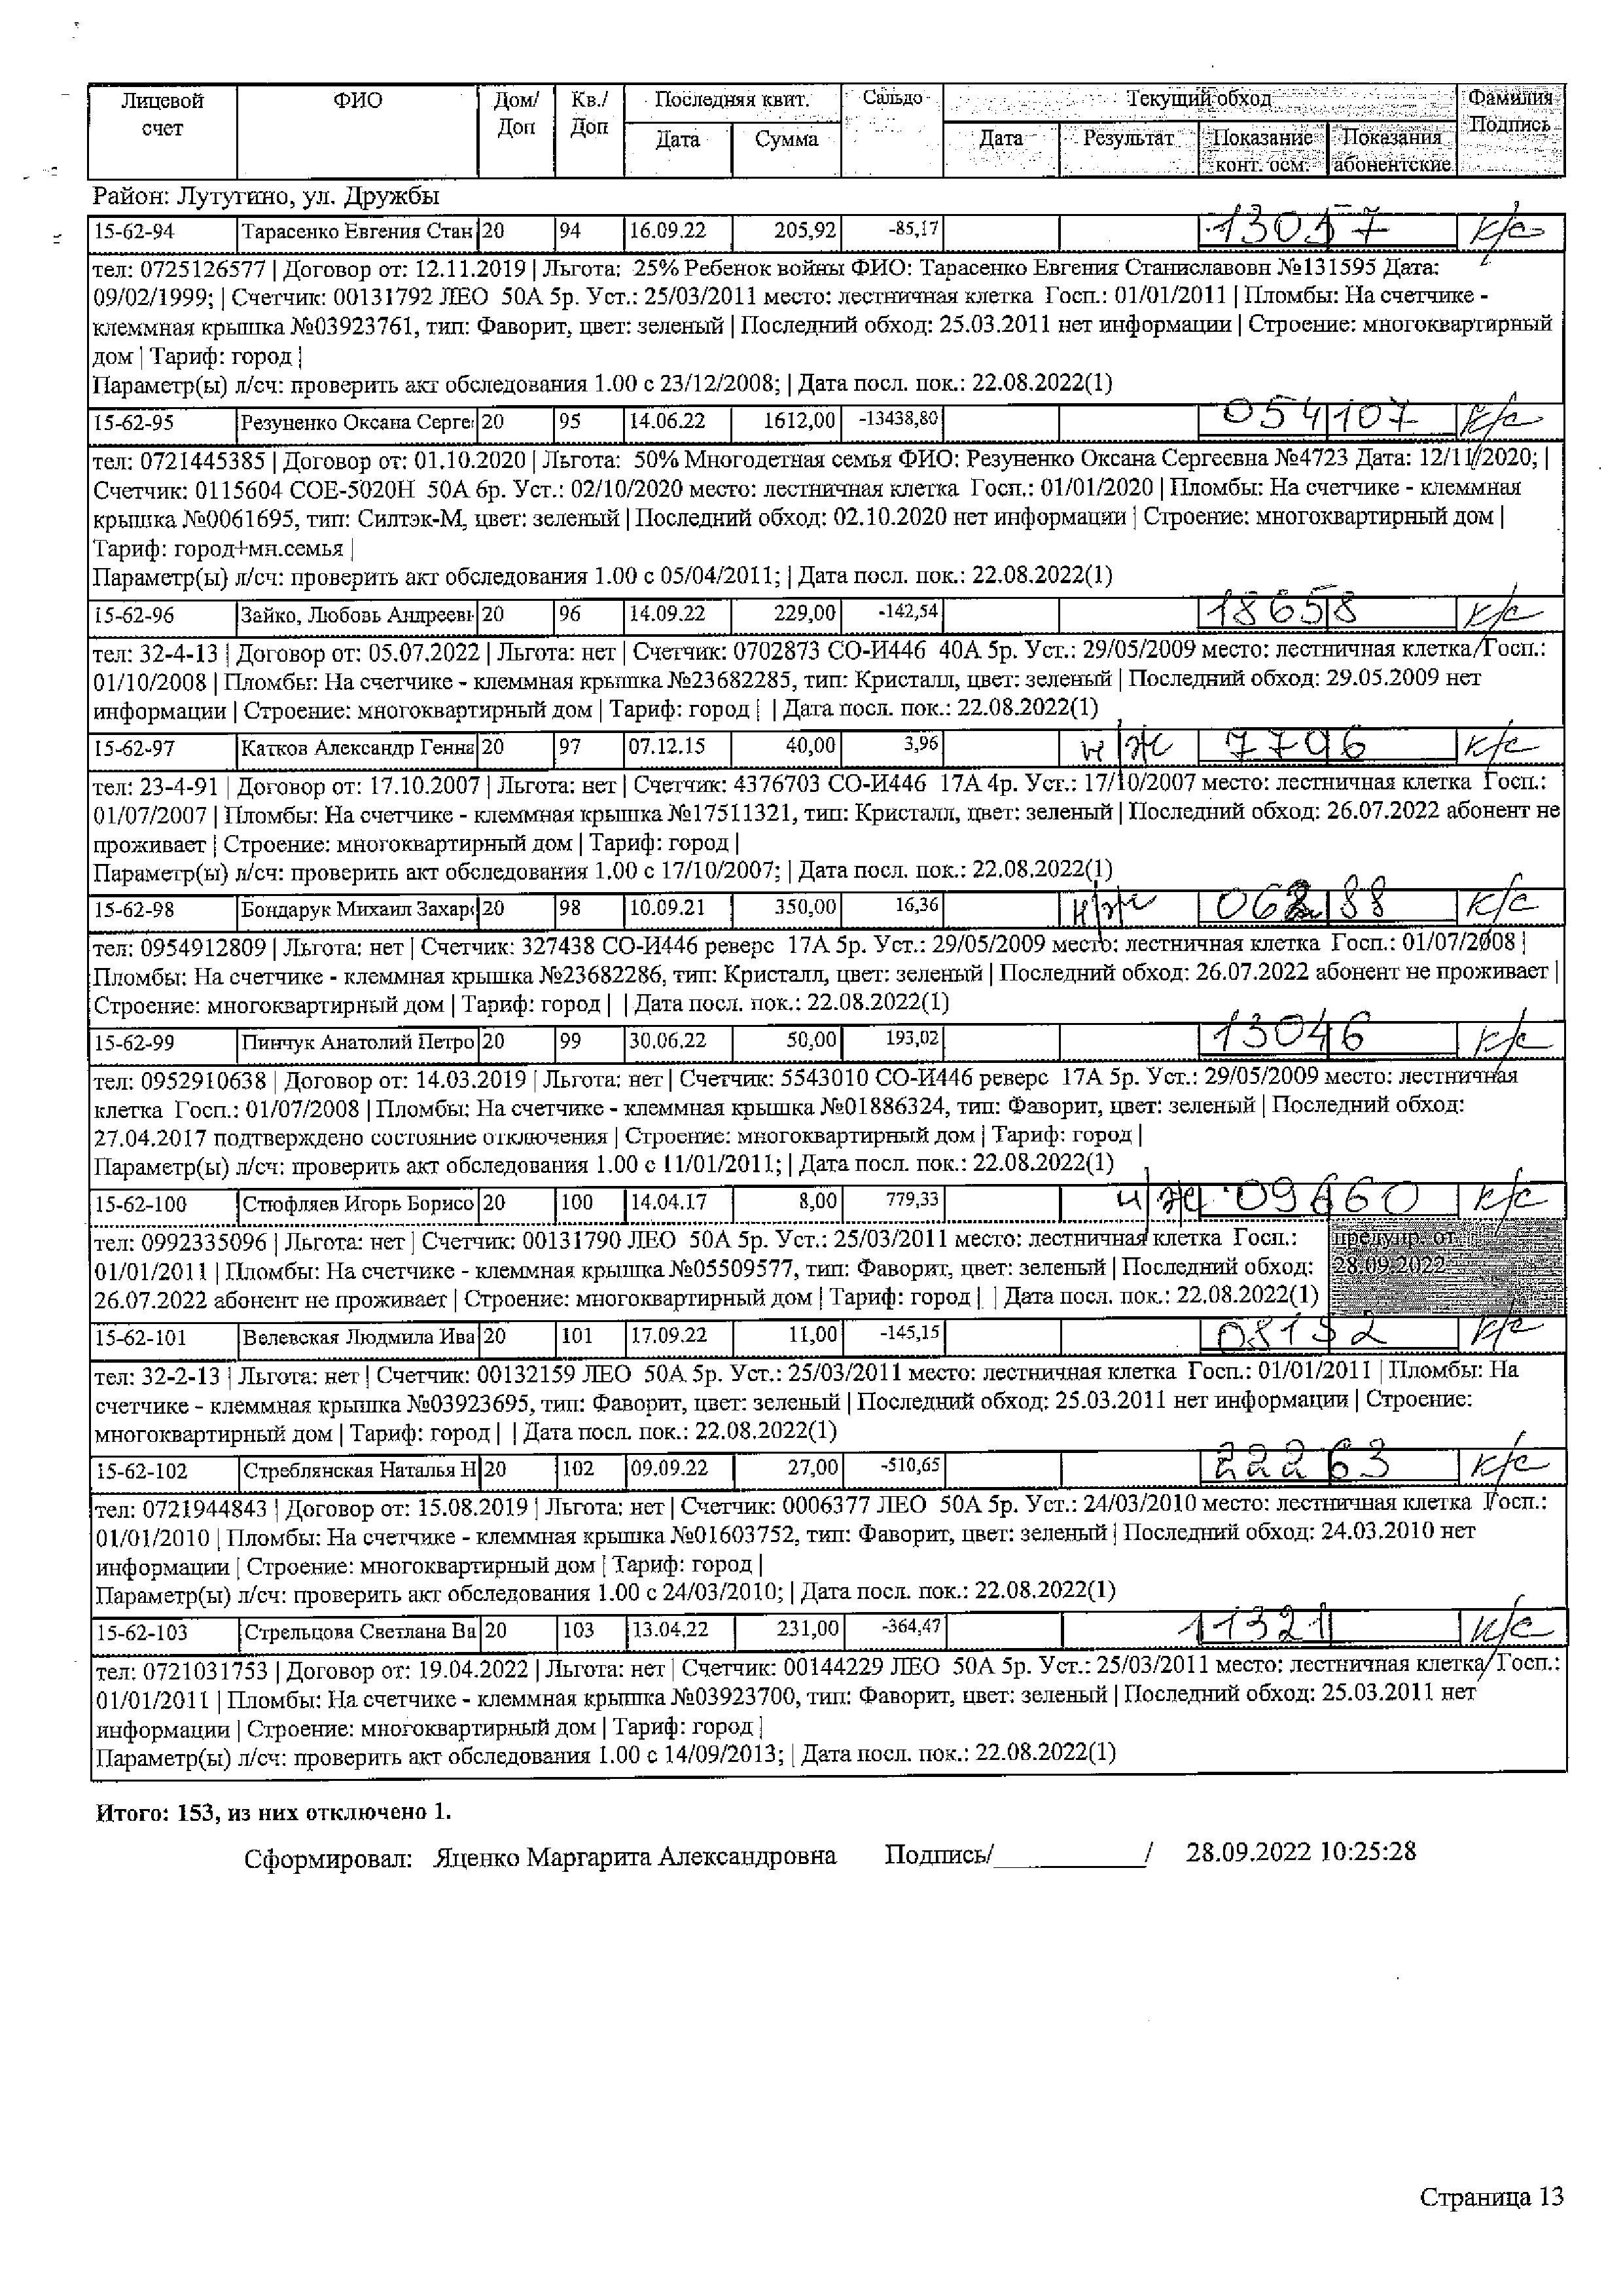 Лицевой счет | ФИО | Дом/Доп | Кв./Доп | Последняя квит. | Сальдо | Текущий обход | Фамилия Подпись
Дата | Сумма | Дата | Результат | Показание конт. осм. | Показания абонентские
Район: Лутугино, ул. Дружбы
15-62-94 | Тарасенко Евгения Стан | 20 | 94 | 16.09.22 | 205,92 | -85,17 | к/с
тел: 0725126577 | Договор от: 12.11.2019 | Льгота: 25% Ребенок войны ФИО: Тарасенко Евгения Станиславовн №131595 Дата:
09/02/1999; | Счетчик: 00131792 ЛЕО 50А 5р. Уст.: 25/03/2011 место: лестничная клетка Госп.: 01/01/2011 | Пломбы: На счетчике -
клеммная крышка №03923761, тип: Фаворит, цвет: зеленый | Последний обход: 25.03.2011 нет информации | Строение: многоквартирный
дом | Тариф: город |
Параметр(ы) л/сч: проверить акт обследования 1.00 с 23/12/2008; | Дата посл. пок.: 22.08.2022(1)
15-62-95 | Резуненко Оксана Серге | 20 | 95 | 14.06.22 | 1612,00 | -13438,80 | 054107 | к/с
тел: 0721445385 | Договор от: 01.10.2020 | Льгота: 50% Многодетная семья ФИО: Резуненко Оксана Сергеевна №4723 Дата: 12/11/2020; |
Счетчик: 0115604 СОЕ-5020Н 50А 6р. Уст.: 02/10/2020 место: лестничная клетка Госп.: 01/01/2020 | Пломбы: На счетчике - клеммная
крышка №0061695, тип: Силтэк-М, цвет: зеленый | Последний обход: 02.10.2020 нет информации | Строение: многоквартирный дом |
Тариф: город+мн.семья |
Параметр(ы) л/сч: проверить акт обследования 1.00 с 05/04/2011; | Дата посл. пок.: 22.08.2022(1)
15-62-96 | Зайко, Любовь Андреевн | 20 | 96 | 14.09.22 | 229,00 | -142,54 | 18658 | к/с
тел: 32-4-13 | Договор от: 05.07.2022 | Льгота: нет | Счетчик: 0702873 СО-И446 40А 5р. Уст.: 29/05/2009 место: лестничная клетка Госп.:
01/10/2008 | Пломбы: На счетчике - клеммная крышка №23682285, тип: Кристалл, цвет: зеленый | Последний обход: 29.05.2009 нет
информации | Строение: многоквартирный дом | Тариф: город | | Дата посл. пок.: 22.08.2022(1)
15-62-97 | Катков Александр Генна | 20 | 97 | 07.12.15 | 40,00 | 3,96 | н/ж | 7796 | к/с
тел: 23-4-91 | Договор от: 17.10.2007 | Льгота: нет | Счетчик: 4376703 СО-И446 17А 4р. Уст.: 17/10/2007 место: лестничная клетка Госп.:
01/07/2007 | Пломбы: На счетчике - клеммная крышка №17511321, тип: Кристалл, цвет: зеленый | Последний обход: 26.07.2022 абонент не
проживает | Строение: многоквартирный дом | Тариф: город |
Параметр(ы) л/сч: проверить акт обследования 1.00 с 17/10/2007; | Дата посл. пок.: 22.08.2022(1)
15-62-98 | Бондарук Михаил Захар | 20 | 98 | 10.09.21 | 350,00 | 16,36 | н/ж | к/с
тел: 0954912809 | Льгота: нет | Счетчик: 327438 СО-И446 реверс 17А 5р. Уст.: 29/05/2009 место: лестничная клетка Госп.: 01/07/2008 |
Пломбы: На счетчике - клеммная крышка №23682286, тип: Кристалл, цвет: зеленый | Последний обход: 26.07.2022 абонент не проживает |
Строение: многоквартирный дом | Тариф: город | | Дата посл. пок.: 22.08.2022(1)
15-62-99 | Пинчук Анатолий Петро | 20 | 99 | 30.06.22 | 50,00 | 193,02 | 13046 | к/с
тел: 0952910638 | Договор от: 14.03.2019 | Льгота: нет | Счетчик: 5543010 СО-И446 реверс 17А 5р. Уст.: 29/05/2009 место: лестничная
клетка Госп.: 01/07/2008 | Пломбы: На счетчике - клеммная крышка №01886324, тип: Фаворит, цвет: зеленый | Последний обход:
27.04.2017 подтверждено состояние отключения | Строение: многоквартирный дом | Тариф: город |
Параметр(ы) л/сч: проверить акт обследования 1.00 с 11/01/2011; | Дата посл. пок.: 22.08.2022(1)
15-62-100 | Стюфляев Игорь Борисо | 20 | 100 | 14.04.17 | 8,00 | 779,33 | н/ж | к/с
тел: 0992335096 | Льгота: нет | Счетчик: 00131790 ЛЕО 50А 5р. Уст.: 25/03/2011 место: лестничная клетка Госп.: | предупр. от
01/01/2011 | Пломбы: На счетчике - клеммная крышка №05509577, тип: Фаворит, цвет: зеленый | Последний обход: | 28.09.2022
26.07.2022 абонент не проживает | Строение: многоквартирный дом | Тариф: город | | Дата посл. пок.: 22.08.2022(1)
15-62-101 | Велевская Людмила Ива | 20 | 101 | 17.09.22 | 11,00 | -145,15 | 08132 | к/с
тел: 32-2-13 | Льгота: нет | Счетчик: 00132159 ЛЕО 50А 5р. Уст.: 25/03/2011 место: лестничная клетка Госп.: 01/01/2011 | Пломбы: На
счетчике - клеммная крышка №03923695, тип: Фаворит, цвет: зеленый | Последний обход: 25.03.2011 нет информации | Строение:
многоквартирный дом | Тариф: город | | Дата посл. пок.: 22.08.2022(1)
15-62-102 | Стреблянская Наталья Н | 20 | 102 | 09.09.22 | 27,00 | -510,65 | 22263 | к/с
тел: 0721944843 | Договор от: 15.08.2019 | Льгота: нет | Счетчик: 0006377 ЛЕО 50А 5р. Уст.: 24/03/2010 место: лестничная клетка Госп.:
01/01/2010 | Пломбы: На счетчике - клеммная крышка №01603752, тип: Фаворит, цвет: зеленый | Последний обход: 24.03.2010 нет
информации | Строение: многоквартирный дом | Тариф: город |
Параметр(ы) л/сч: проверить акт обследования 1.00 с 24/03/2010; | Дата посл. пок.: 22.08.2022(1)
15-62-103 | Стрельцова Светлана Ва | 20 | 103 | 13.04.22 | 231,00 | -364,47 | 11321 | к/с
тел: 0721031753 | Договор от: 19.04.2022 | Льгота: нет | Счетчик: 00144229 ЛЕО 50А 5р. Уст.: 25/03/2011 место: лестничная клетка Госп.:
01/01/2011 | Пломбы: На счетчике - клеммная крышка №03923700, тип: Фаворит, цвет: зеленый | Последний обход: 25.03.2011 нет
информации | Строение: многоквартирный дом | Тариф: город |
Параметр(ы) л/сч: проверить акт обследования 1.00 с 14/09/2013; | Дата посл. пок.: 22.08.2022(1)
Итого: 153, из них отключено 1.
Сформировал: Яценко Маргарита Александровна Подпись/____________/ 28.09.2022 10:25:28
Страница 13